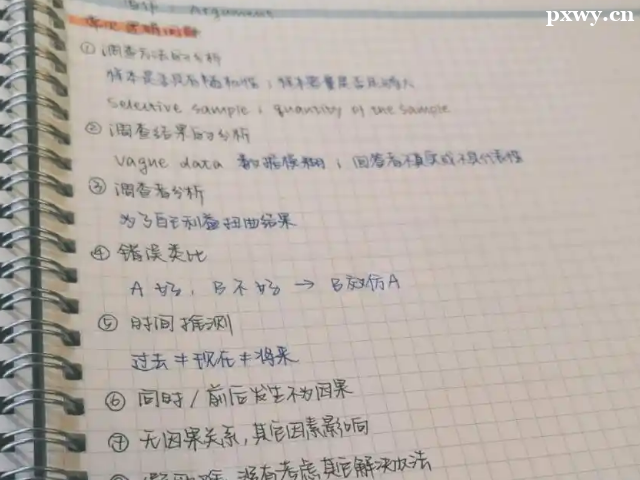 pxwy.cn
Argument
常见逻辑问题
① 调查方法的分析
样本是否具有随机性；样本容量是否足够大
Selective sample；quantity of the sample
② 调查结果的分析
vague data 数据模糊；回答者不真实或不具代表性
③ 调查者分析
为了自己利益扭曲结果
④ 错误类比
A 好，B 不好 → B效仿A
⑤ 时间推测
过去≠现在≠将来
⑥ 同时/前后发生不为因果
⑦ 无因果关系，其它因素影响
没有考虑其它解决办法